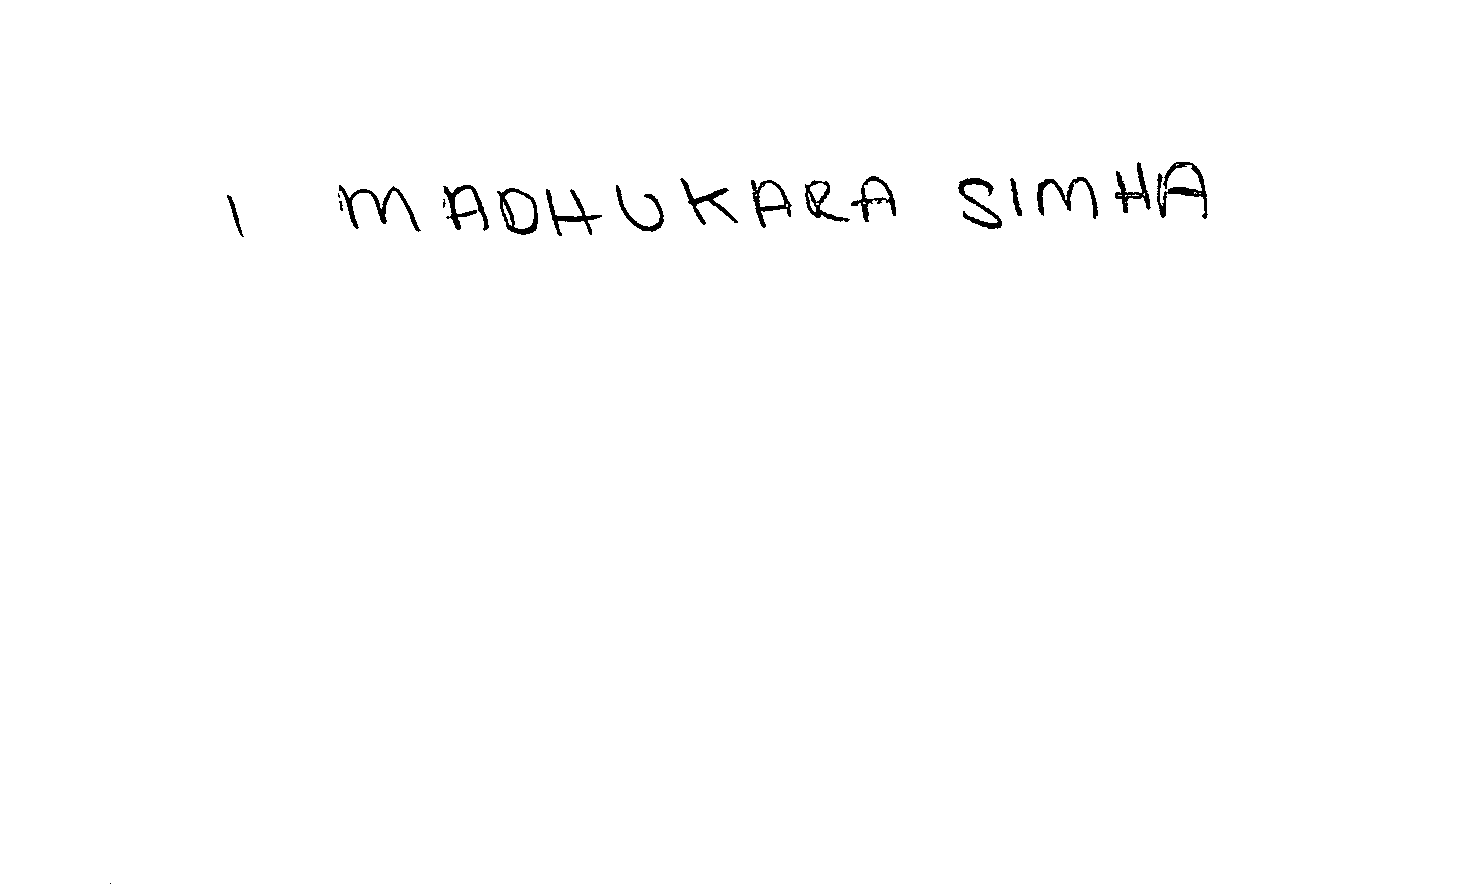 1 MADHUKARA SIMHA